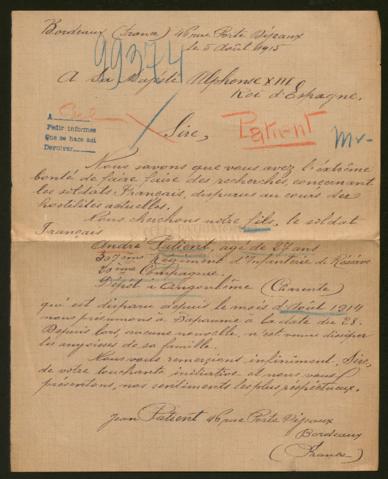 Bordeaux (France) 46 rue Porte Dijeaux
le 5 Août 1915
99374
A Sa Majesté Alphonse XIII
Roi d'Espagne.
A
Pedir informes
Que se hace así
Devolver
Sire,
Patient
Nous savons que vous avez l'extrême
bonté de faire faire des recherches, concernant
les soldats Français, disparus au cours des
hostilités actuelles.
Nous cherchons notre fils, le soldat
Français
André Patient, agé de 27 ans
307ème Régiment d'Infanterie de Réserve
20ème Compagnie.
Dépôt à Angoulême (Charente)
qui est disparu depuis le mois d'Août 1914
nous présumons à Bapaume à la date du 28.
Depuis lors, aucune nouvelle, n'est venue dissiper
les angoisses de sa famille.
Nous vous remercions infiniment, Sire,
de votre touchante initiative et nous vous
présentons, nos sentiments les plus respectueux.
Jean Patient 46 rue Porte Dijeaux
Bordeaux
(France)